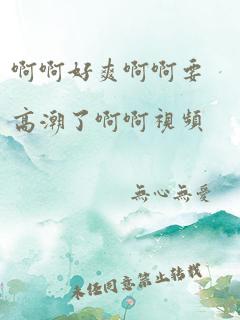 啊啊好爽啊啊要
高潮了啊啊視頻
無心無愛
未經同意禁止轉載